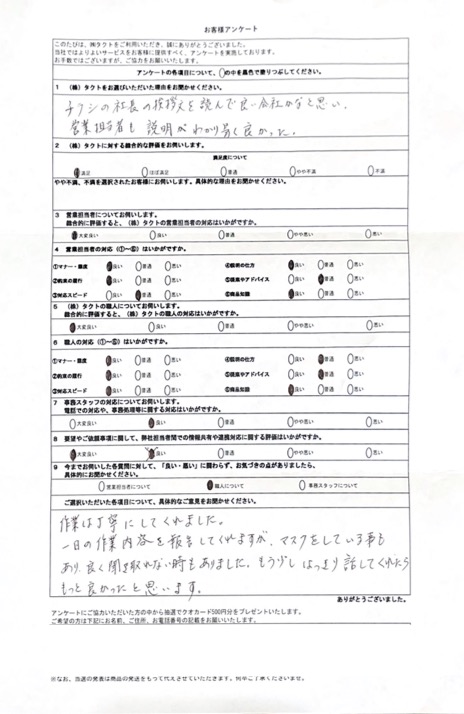 お客様アンケート
このたびは、㈱タクトをご利用いただき、誠にありがとうございました。
当社ではよりよいサービスをお客様に提供すべく、アンケートを実施しております。
お手数ではございますが、ご協力をお願いいたします。
アンケートの各項目について、○の中を黒色で塗りつぶしてください。
1 (株)タクトをお選びいただいた理由をお聞かせください。
チラシの社長の挨拶文を読んで良い会社かなと思い、
営業担当者も説明がわかり易く良かった。
2 (株)タクトに対する総合的な評価をお伺いします。
満足度について
満足 ほぼ満足 普通 やや不満 不満
やや不満、不満を選択されたお客様にお伺いします。具体的な理由をお聞かせください。
3 営業担当者についてお伺いします。
総合的に評価すると、(株)タクトの営業担当者の対応はいかがですか。
大変良い 良い 普通 やや悪い 悪い
4 営業担当者の対応(①~⑥)はいかがですか。
①マナー・態度 良い 普通 悪い ④説明の仕方 良い 普通 悪い
②約束の履行 良い 普通 悪い ⑤提案やアドバイス 良い 普通 悪い
③対応スピード 良い 普通 悪い ⑥商品知識 良い 普通 悪い
5 (株)タクトの職人についてお伺いします。
総合的に評価すると、(株)タクトの職人の対応はいかがですか。
大変良い 良い 普通 やや悪い 悪い
6 職人の対応(①~⑥)はいかがですか。
①マナー・態度 良い 普通 悪い ④説明の仕方 良い 普通 悪い
②約束の履行 良い 普通 悪い ⑤提案やアドバイス 良い 普通 悪い
③対応スピード 良い 普通 悪い ⑥商品知識 良い 普通 悪い
7 事務スタッフの対応についてお伺いします。
電話での対応や、事務処理等に関する対応はいかがですか。
大変良い 良い 普通 やや悪い 悪い
8 要望やご依頼事項に関して、弊社担当者間での情報共有や連携対応に関する評価はいかがですか。
大変良い 良い 普通 やや悪い 悪い
9 今までお伺いした各質問に対して、「良い・悪い」に関わらず、お気づきの点がありましたら、
具体的にお聞かせください。
営業担当者について 職人について 事務スタッフについて
ご選択いただいた各項目について、具体的なご意見をお聞かせください。
作業は丁寧にしてくれました。
一日の作業内容を報告してくれますが、マスクをしている事も
あり、良く聞き取れない時もありました。もう少しはっきり話してくれたら
もっと良かったと思います。
ありがとうございました。
アンケートにご協力いただいた方の中から抽選でクオカード500円分をプレゼントいたします。
ご希望の方は下記にお名前、ご住所、お電話番号の記載をお願いいたします。
※なお、当選の発表は商品の発送をもって代えさせていただきます。何卒ご了承くださいませ。